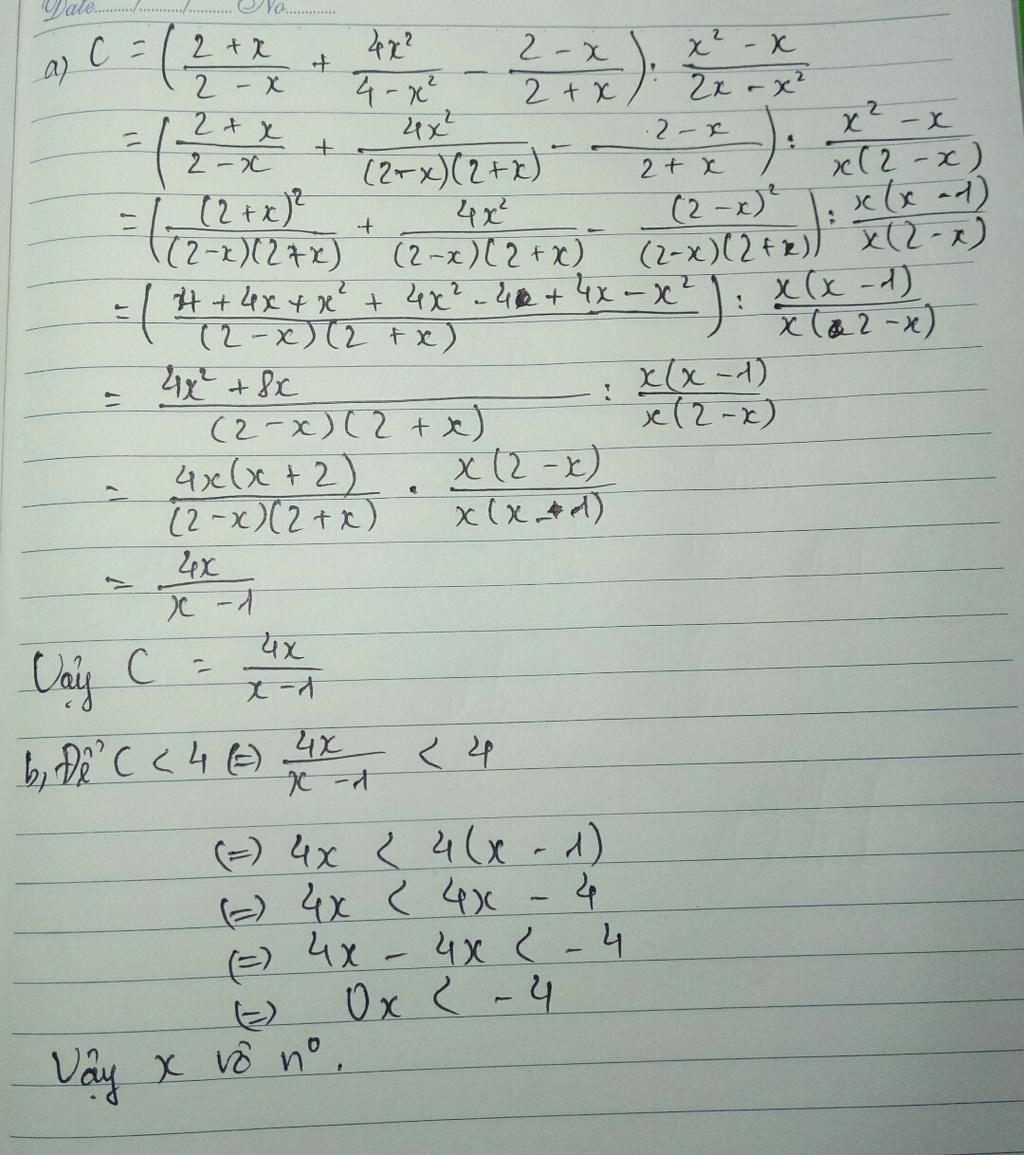 Date........./........./......... No............
a) C = ( (2 + x)/(2 - x) + 4x²/(4 - x²) - (2 - x)/(2 + x) ) : (x² - x)/(2x - x²)
= ( (2 + x)/(2 - x) + 4x²/((2 - x)(2 + x)) - (2 - x)/(2 + x) ) : (x² - x)/(x(2 - x))
= ( (2 + x)²/((2 - x)(2 + x)) + 4x²/((2 - x)(2 + x)) - (2 - x)²/((2 - x)(2 + x)) ) : x(x - 1)/(x(2 - x))
= ( (4 + 4x + x² + 4x² - 4 + 4x - x²)/((2 - x)(2 + x)) ) : x(x - 1)/(x(2 - x))
= (4x² + 8x)/((2 - x)(2 + x)) : x(x - 1)/(x(2 - x))
= 4x(x + 2)/((2 - x)(2 + x)) . x(2 - x)/(x(x - 1))
= 4x/(x - 1)
Vậy C = 4x/(x - 1)
b, Để C < 4 (=) 4x/(x - 1) < 4
(=) 4x < 4(x - 1)
(=) 4x < 4x - 4
(=) 4x - 4x < - 4
(=) 0x < - 4
Vậy x vô n⁰.